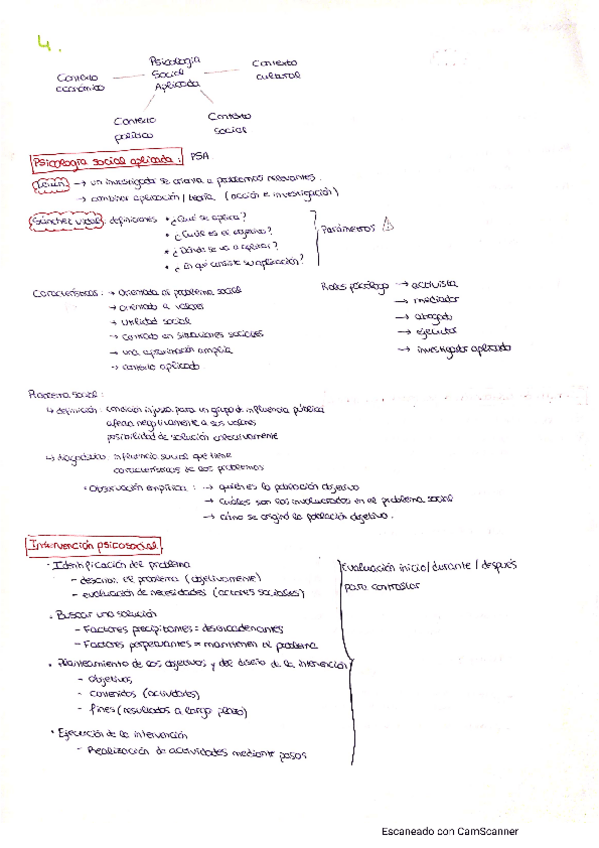 4.
Psicología
Social
Aplicada
Contexto
económico
Contexto
cultural
Contexto
político
Contexto
social
Psicología social aplicada: PSA
→ un investigador se orienta a problemas relevantes.
→ combinar aplicación / teoría (acción e investigación)
Sánchez Vidal: definiciones • ¿Qué se aplica?
• ¿Cuál es el objetivo?
• ¿Dónde se va a aplicar?
• ¿En qué consiste su aplicación?
Parámetros
Características: → Orientada al problema social
→ orientado a valores
→ utilidad social
→ centrado en situaciones sociales
→ una aproximación amplia
→ contexto aplicado
Roles psicólogo → activista
→ mediador
→ abogado
→ ejecutor
→ investigador aplicado
Problema social:
↳ definición: condición injusta para un grupo de influencia pública
afectan negativamente a sus valores
posibilidad de solución colectivamente
↳ diagnóstico: influencia social que tiene
características de los problemas
• Observación empírica: → quién es la población objetivo
→ cuáles son los involucrados en el problema social
→ cómo se originó la población objetivo.
Intervención psicosocial
• Identificación del problema
- describir el problema (objetivamente)
- evaluación de necesidades (actores sociales)
• Buscar una solución
- Factores precipitantes = desencadenantes
- Factores perpetuantes = mantienen el problema
• Planteamiento de los objetivos y del diseño de la intervención
- objetivos
- contenidos (actividades)
- fines (resultados a largo plazo)
• Ejecución de la intervención
- Realización de actividades mediante pasos
Evaluación inicio / durante / después
para controlar
Escaneado con CamScanner